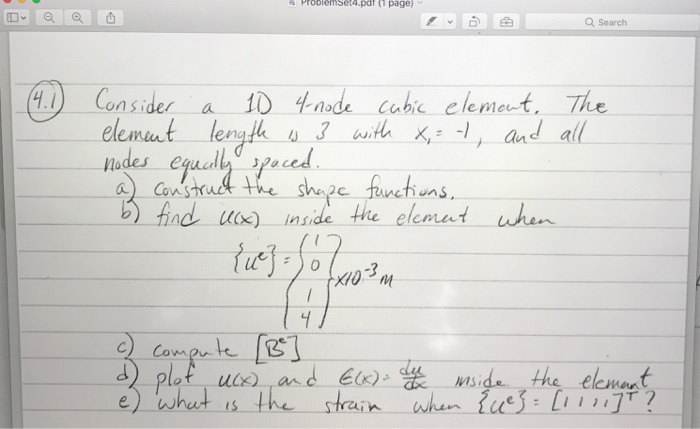 ProblemSet4.pdf (1 page)
Search
4.1) Consider a 1D 4-node cubic element. The
element length is 3 with x₁ = -1, and all
nodes equally spaced.
a) construct the shape functions.
b) find u(x) inside the element when
{uᵉ} = {1 0 1 4} ×10⁻³ m
c) compute [Bᵉ]
d) plot u(x) and ϵ(x) = du/dx inside the element
e) what is the strain when {uᵉ} = [1 1 1 1]ᵀ ?